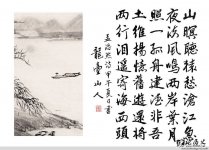 山暝聽猿愁滄江急
夜流風鳴兩岸葉月
照一孤舟建德非吾
土維揚憶舊遊還將
兩行淚遙寄海西頭
孟浩然詩甲午夏書
山人